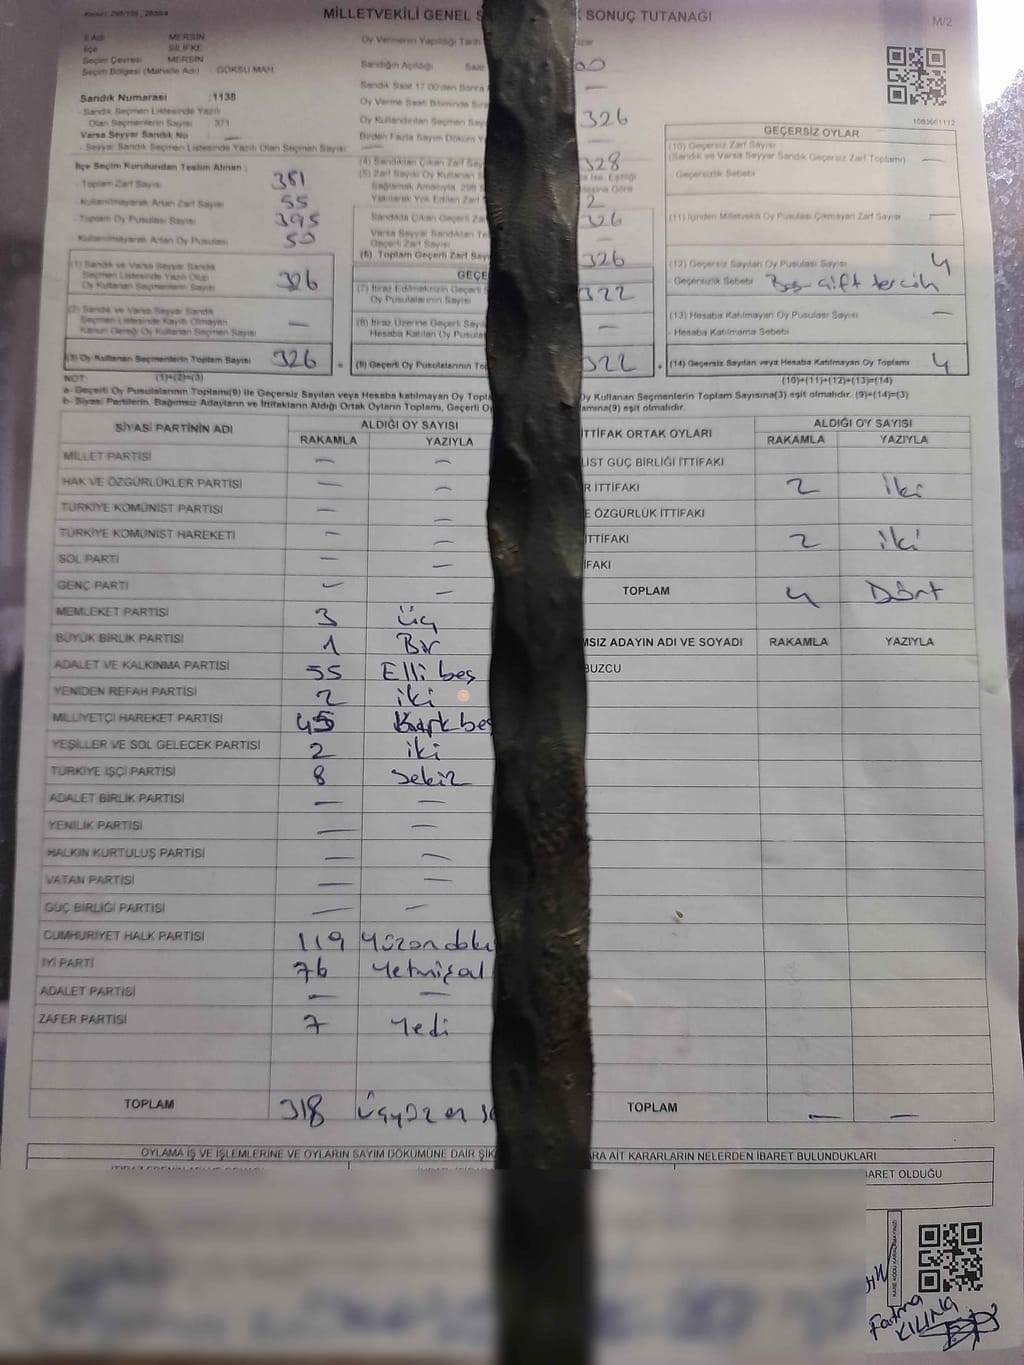 MİLLETVEKİLİ GENEL S
SONUÇ TUTANAĞI
M/2
İl Adı MERSİN
İlçe SİLİFKE
Seçim Çevresi MERSİN
Seçim Bölgesi (Mahalle Adı) : GÖKSU MAH.
Sandık Numarası : 1138
- Sandık Seçmen Listesinde Yazılı
Olan Seçmenlerin Sayısı : 371
Varsa Seyyar Sandık No —
- Seyyar Sandık Seçmen Listesinde Yazılı Olan Seçmen Sayısı : —
İlçe Seçim Kurulundan Teslim Alınan ;
- Toplam Zarf Sayısı 381
- Kullanılmayarak Artan Zarf Sayısı 55
- Toplam Oy Pusulası Sayısı 395
- Kullanılmayarak Artan Oy Pusulası 50
(1) Sandık ve Varsa Seyyar Sandık
Seçmen Listesinde Yazılı Olup
Oy Kullanan Seçmenlerin Sayısı 326
(2) Sandık ve Varsa Seyyar Sandık
Seçmen Listesinde Kayıtlı Olmayan
Kanun Gereği Oy Kullanan Seçmen Sayısı —
(3) Oy Kullanan Seçmenlerin Toplam Sayısı 326 =
NOT: (1)+(2)=(3)
Oy Vermenin Yapıldığı Tarih
zar
Sandığın Açıldığı Saat
Sandık Saat 17:00'den Sonra —
Oy Verme Saati Bitiminde Sıra
Oy Kullandırılan Seçmen Say 326
Birden Fazla Sayım Döküm Y
(4) Sandıktan Çıkan Zarf Say 328
(5) Zarf Sayısı Oy Kullanan S
Sağlamak Amacıyla, 298 S
Yakılarak Yok Edilen Zarf 2
Sandıkta Çıkan Geçerli Z 326
Varsa Seyyar Sandıktan
Geçerli Zarf Sayısı —
(6) Toplam Geçerli Zarf Sayı 326
GEÇE
(7) İtiraz Edilmeksizin Geçerli
Oy Pusulalarının Sayısı 322
(8) İtiraz Üzerine Geçerli Sayı
Hesaba Katılan Oy Pusula —
(9) Geçerli Oy Pusulalarının To 322 +
1083661112
GEÇERSİZ OYLAR
(10) Geçersiz Zarf Sayısı
(Sandık ve Varsa Seyyar Sandık Geçersiz Zarf Toplamı) —
- Geçersizlik Sebebi
(11) İçinden Milletvekili Oy Pusulası Çıkmayan Zarf Sayısı —
(12) Geçersiz Sayılan Oy Pusulası Sayısı 4
- Geçersizlik Sebebi : Boş çift tercih
(13) Hesaba Katılmayan Oy Pusulası Sayısı —
- Hesaba Katılmama Sebebi
(14) Geçersiz Sayılan veya Hesaba Katılmayan Oy Toplamı 4
(10)+(11)+(12)+(13)=(14)
a- Geçerli Oy Pusulalarının Toplamı(9) ile Geçersiz Sayılan veya Hesaba katılmayan Oy Topla
Oy Kullanan Seçmenlerin Toplam Sayısına(3) eşit olmalıdır. (9)+(14)=(3)
b- Siyasi Partilerin, Bağımsız Adayların ve İttifakların Aldığı Ortak Oyların Toplamı, Geçerli O
amına(9) eşit olmalıdır.
SİYASİ PARTİNİN ADI ALDIĞI OY SAYISI
RAKAMLA YAZIYLA
MİLLET PARTİSİ — —
HAK VE ÖZGÜRLÜKLER PARTİSİ — —
TÜRKİYE KOMÜNİST PARTİSİ — —
TÜRKİYE KOMÜNİST HAREKETİ — —
SOL PARTİ — —
GENÇ PARTİ — —
MEMLEKET PARTİSİ 3 Üç
BÜYÜK BİRLİK PARTİSİ 1 Bir
ADALET VE KALKINMA PARTİSİ 55 Elli beş
YENİDEN REFAH PARTİSİ 2 iki
MİLLİYETÇİ HAREKET PARTİSİ 45 Kırk beş
YEŞİLLER VE SOL GELECEK PARTİSİ 2 iki
TÜRKİYE İŞÇİ PARTİSİ 8 sekiz
ADALET BİRLİK PARTİSİ — —
YENİLİK PARTİSİ — —
HALKIN KURTULUŞ PARTİSİ — —
VATAN PARTİSİ — —
GÜÇ BİRLİĞİ PARTİSİ — —
CUMHURİYET HALK PARTİSİ 119 Yüzondoku
İYİ PARTİ 76 Yetmişal
ADALET PARTİSİ — —
ZAFER PARTİSİ 7 Yedi
TOPLAM 318 Üçyüz on se
İTTİFAK ORTAK OYLARI ALDIĞI OY SAYISI
RAKAMLA YAZIYLA
LİST GÜÇ BİRLİĞİ İTTİFAKI
R İTTİFAKI 2 İki
E ÖZGÜRLÜK İTTİFAKI
İTTİFAKI 2 iki
İFAKI
TOPLAM 4 Dört
MSIZ ADAYIN ADI VE SOYADI RAKAMLA YAZIYLA
BUZCU
TOPLAM — —
OYLAMA İŞ VE İŞLEMLERİNE VE OYLARIN SAYIM DÖKÜMÜNE DAİR ŞİK
ARA AİT KARARLARIN NELERDEN İBARET BULUNDUKLARI
BARET OLDUĞU
Fatma
KILINÇ